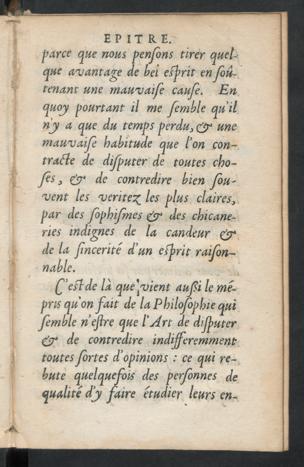 EPITRE.
parce que nous pensons tirer quel-
que avantage de bel esprit en soû-
tenant une mauvaise cause. En
quoy pourtant il me semble qu'il
n'y a que du temps perdu, & une
mauvaise habitude que l'on con-
tracte de disputer de toutes cho-
ses, & de contredire bien sou-
vent les veritez les plus claires,
par des sophismes & des chicane-
ries indignes de la candeur &
de la sincerité d'un esprit raison-
nable.
C'est de là que vient aussi le mé-
pris qu'on fait de la Philosophie qui
semble n'estre que l'Art de disputer
& de contredire indifferemment
toutes sortes d'opinions : ce qui re-
bute quelquefois des personnes de
qualité d'y faire étudier leurs en-